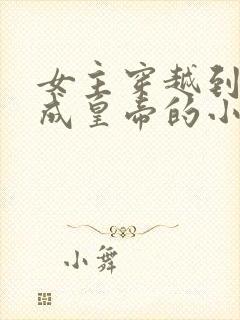 女主穿越到
成皇帝的小
小舞